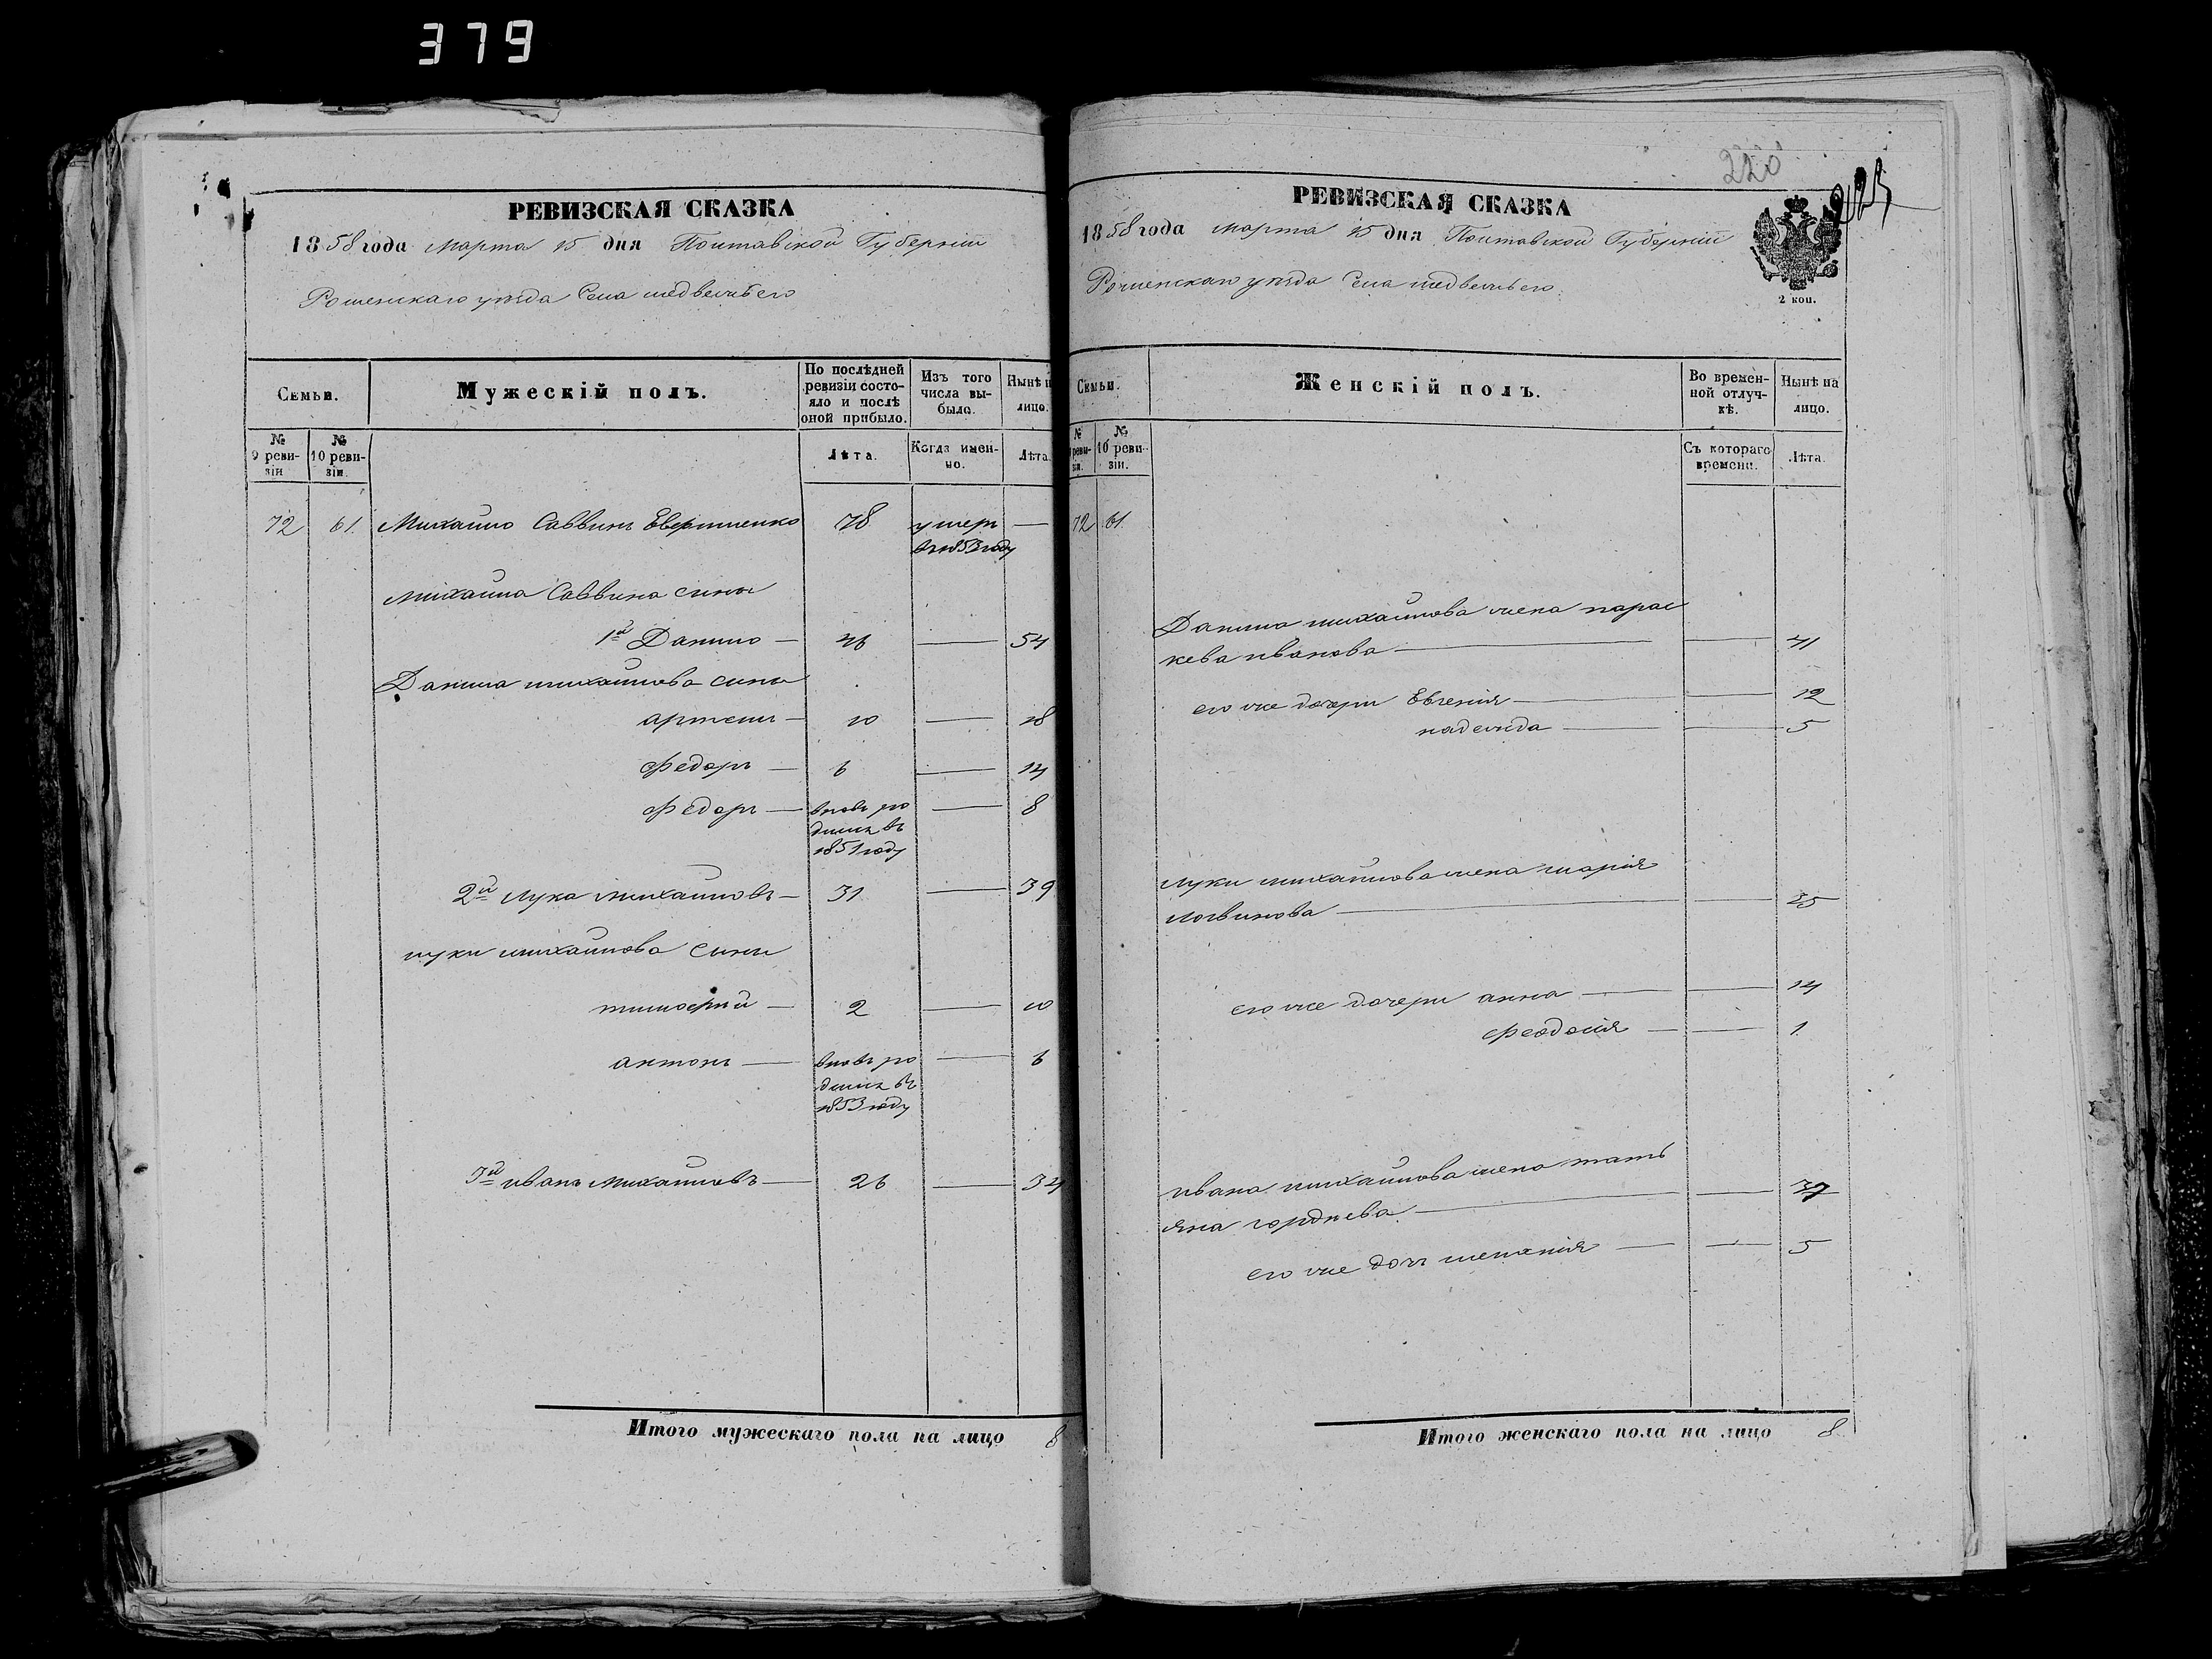 379
РЕВИЗСКАЯ СКАЗКА
1858 года Марта 15 дня Полтавской Губерніи
Роменскаго уѣзда Села Медвежьего
Семьи.
Мужескій полъ.
По послѣдней ревизіи состояло и послѣ оной прибыло.
Изъ того числа выбыло.
Нынѣ н лицо.
№ 9 ревизіи
№ 10 ревизіи.
Лѣта.
Когда именно.
Лѣта
72 61. Михайло Саввинъ 78 умеръ —
въ 1853 году
Михайла Саввина сыны
1й Данило — 46 — 54
Данила Михайлова сыны
Артемъ — 10 — 18
Федоръ — 6 — 14
Федоръ — вновь ро — 8
дился въ
1851 году
2й Лука Михайловъ — 31 — 39
Луки Михайлова сыны
Тимофѣй — 2 — 10
Антонъ — вновь ро — 6
дился въ
1853 году
3й Иванъ Михайловъ — 26 — 34
Итого мужескаго пола на лицо 8
220
РЕВИЗСКАЯ СКАЗКА
1858 года Марта 15 дня Полтавской Губерніи
Роменскаго уѣзда Села Медвежьего
2 коп.
Семьи.
Женскій полъ.
Во временной отлучкѣ.
Нынѣ на лицо.
№ ревизіи.
№ 10 ревизіи.
Съ котораго времени.
Лѣта.
72 61.
Данила Михайлова жена Парас
кева Иванова — — 41
его же дочери Евгенія — — 12
Надежда — — 5
Луки Михайлова жена Марія
Логвинова — — 35
его же дочери Анна — — 14
Феодосія — — 1
Ивана Михайлова жена Тать
яна Гордѣева — — 37
его же дочь Меланія — — 5
Итого женскаго пола на лицо 8.